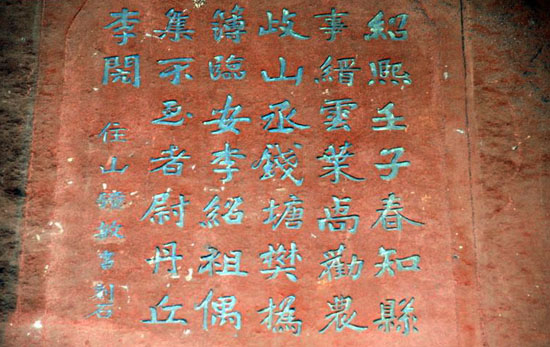 紹熙壬子春知縣
事縉雲葉勸農
歧山丞錢塘樊撝
簿臨安李紹祖偶
集不至者尉丹丘
李
住山敏刻石